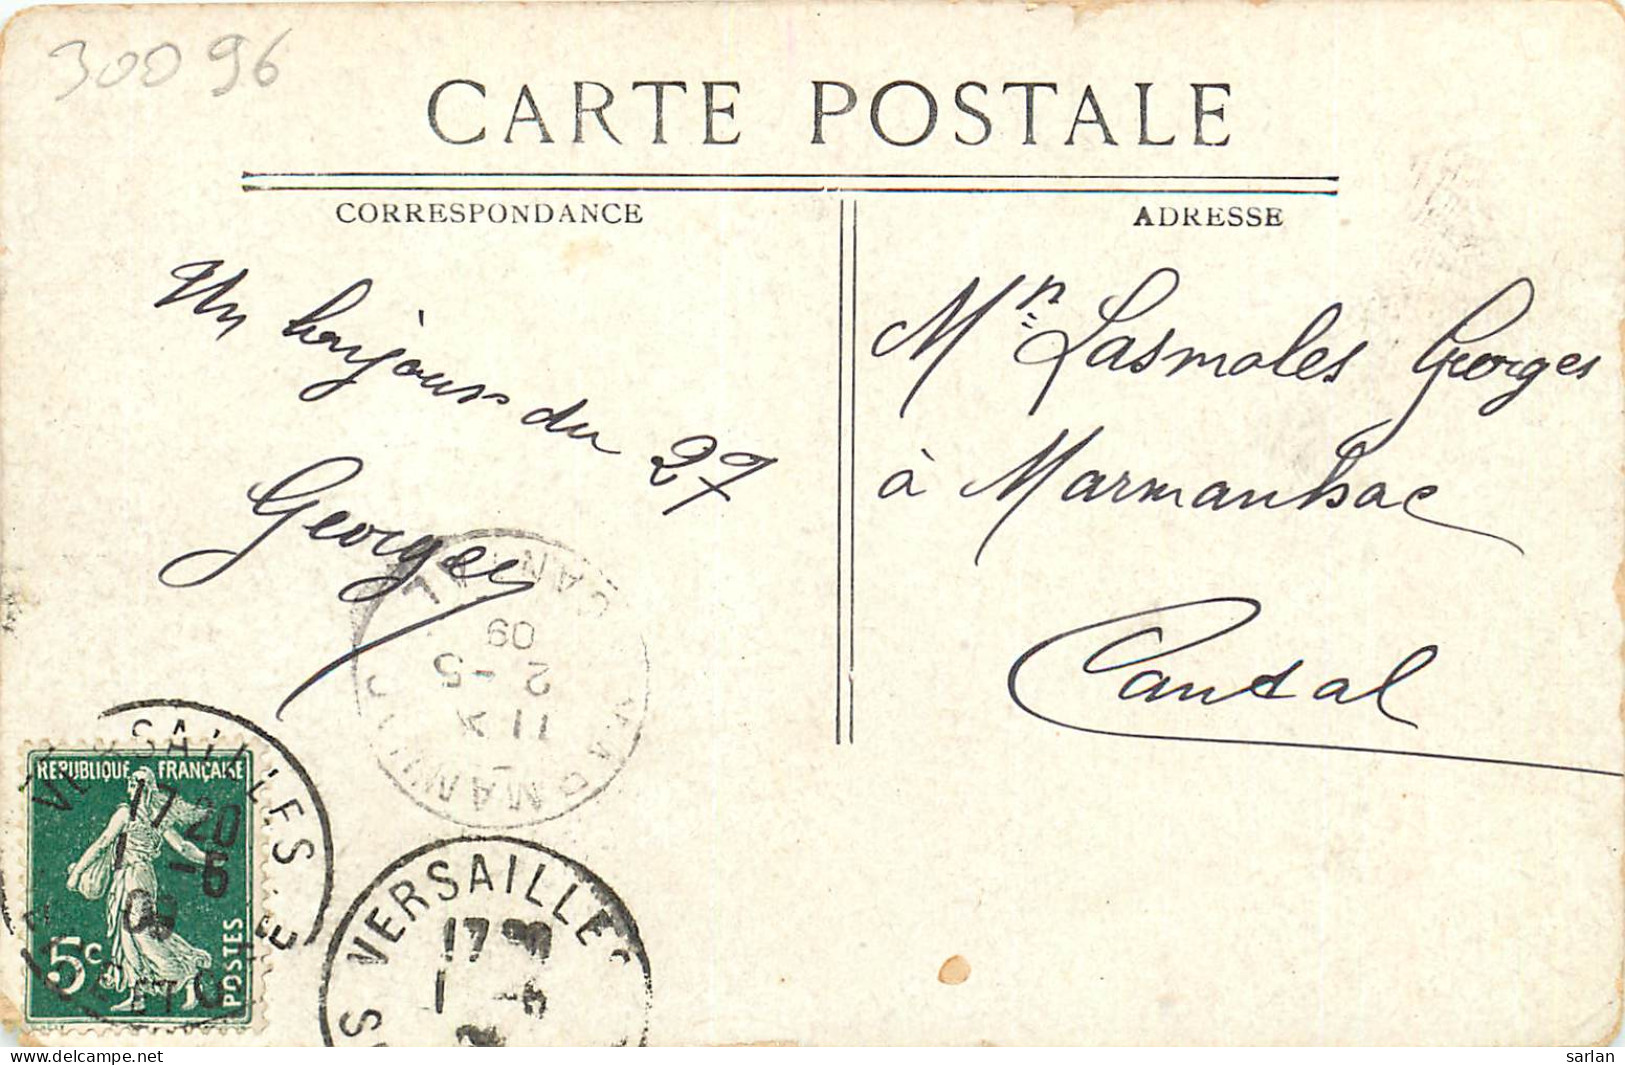 30096
CARTE POSTALE
CORRESPONDANCE
ADRESSE
Un bonjour du 27
Georges
Mr Lasmoles Georges
à Marmanhac
Cantal
MARMANHAC
CANTAL
11
2 -5
09
REPUBLIQUE FRANÇAISE
5c
POSTES
VERSAILLES
17 20
1 -5
09
VERSAILLES
17
1 -5
Sarlan